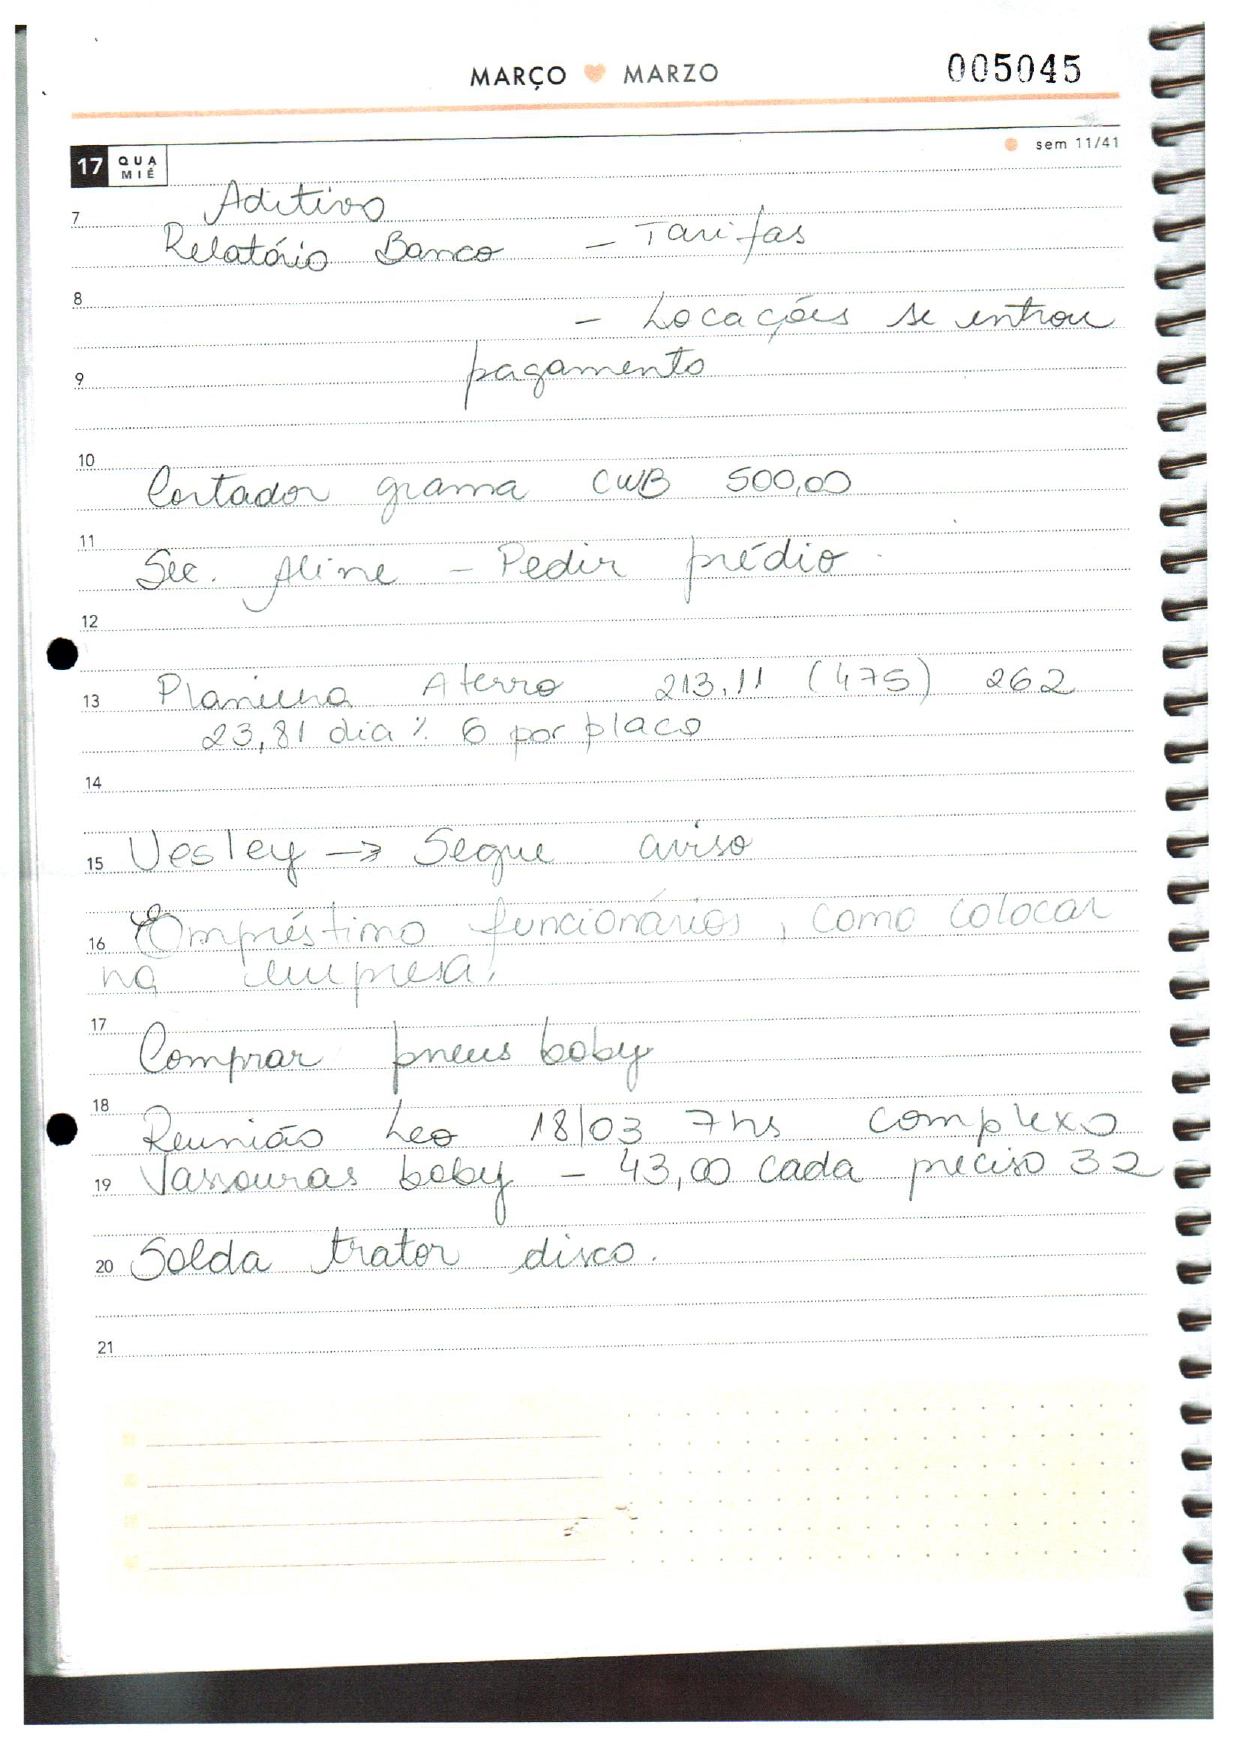 MARÇO MARZO
005045
17 QUA MIÉ
sem 11/41
Aditivo
7
Relatório Banco - Tarifas
8
- Locações se entrou
pagamento
9
10
Cortador grama CWB 500,00
11
Sec. Aline - Pedir prédio.
12
13 Planilha Aterro 213,11 (475) 262
23,81 dia % 6 por placo
14
15 Uesley → Segue aviso
16 Empréstimo funcionários, como colocar
na empresa.
17
Comprar pneus boby
18
Reunião Leo 18/03 7hs complexo
19 Vassouras boby - 43,00 cada preciso 32
20 Solda trator disco.
21